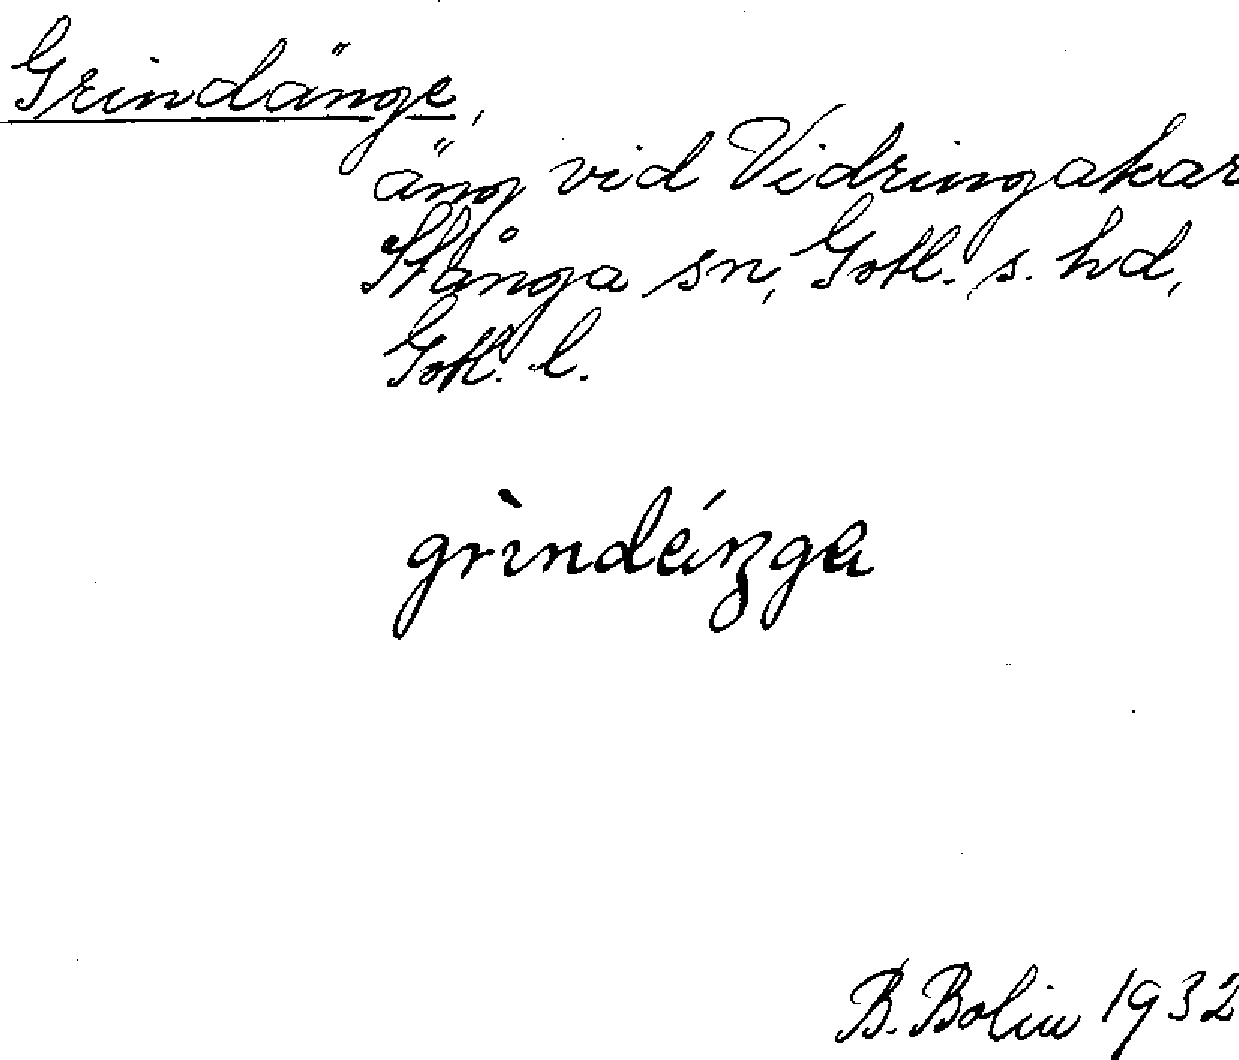 Grindänge,
äng vid Vidringakar
Stånga sn, Gotl. s. hd,
Gotl. l.
grìndéŋga
B. Bolin 1932